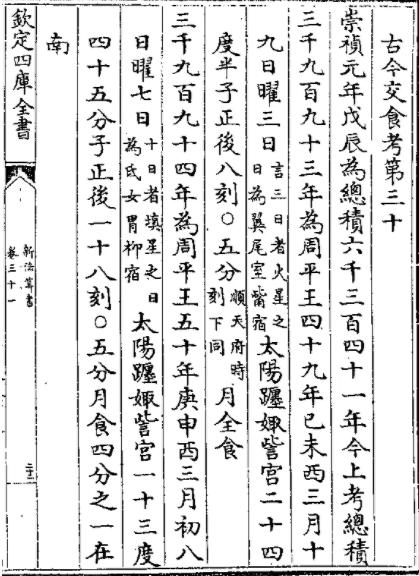 古今交食考第三十
崇禎元年戊辰為總積六千三百四十一年今上考總積
三千九百九十三年為周平王四十九年已未西三月十
九日曜三日言三日者火星之日為翼尾室觜宿太陽躔娵訾宮二十四
度半子正後八刻○五分順天府時刻下同月全食
三千九百九十四年為周平王五十年庚申西三月初八
日曜七日十日者填星之日為氐女胃柳宿太陽躔娵訾宮一十三度
四十五分子正後一十八刻○五分月食四分之一在
南
欽定四庫全書
新法算書
卷三十一